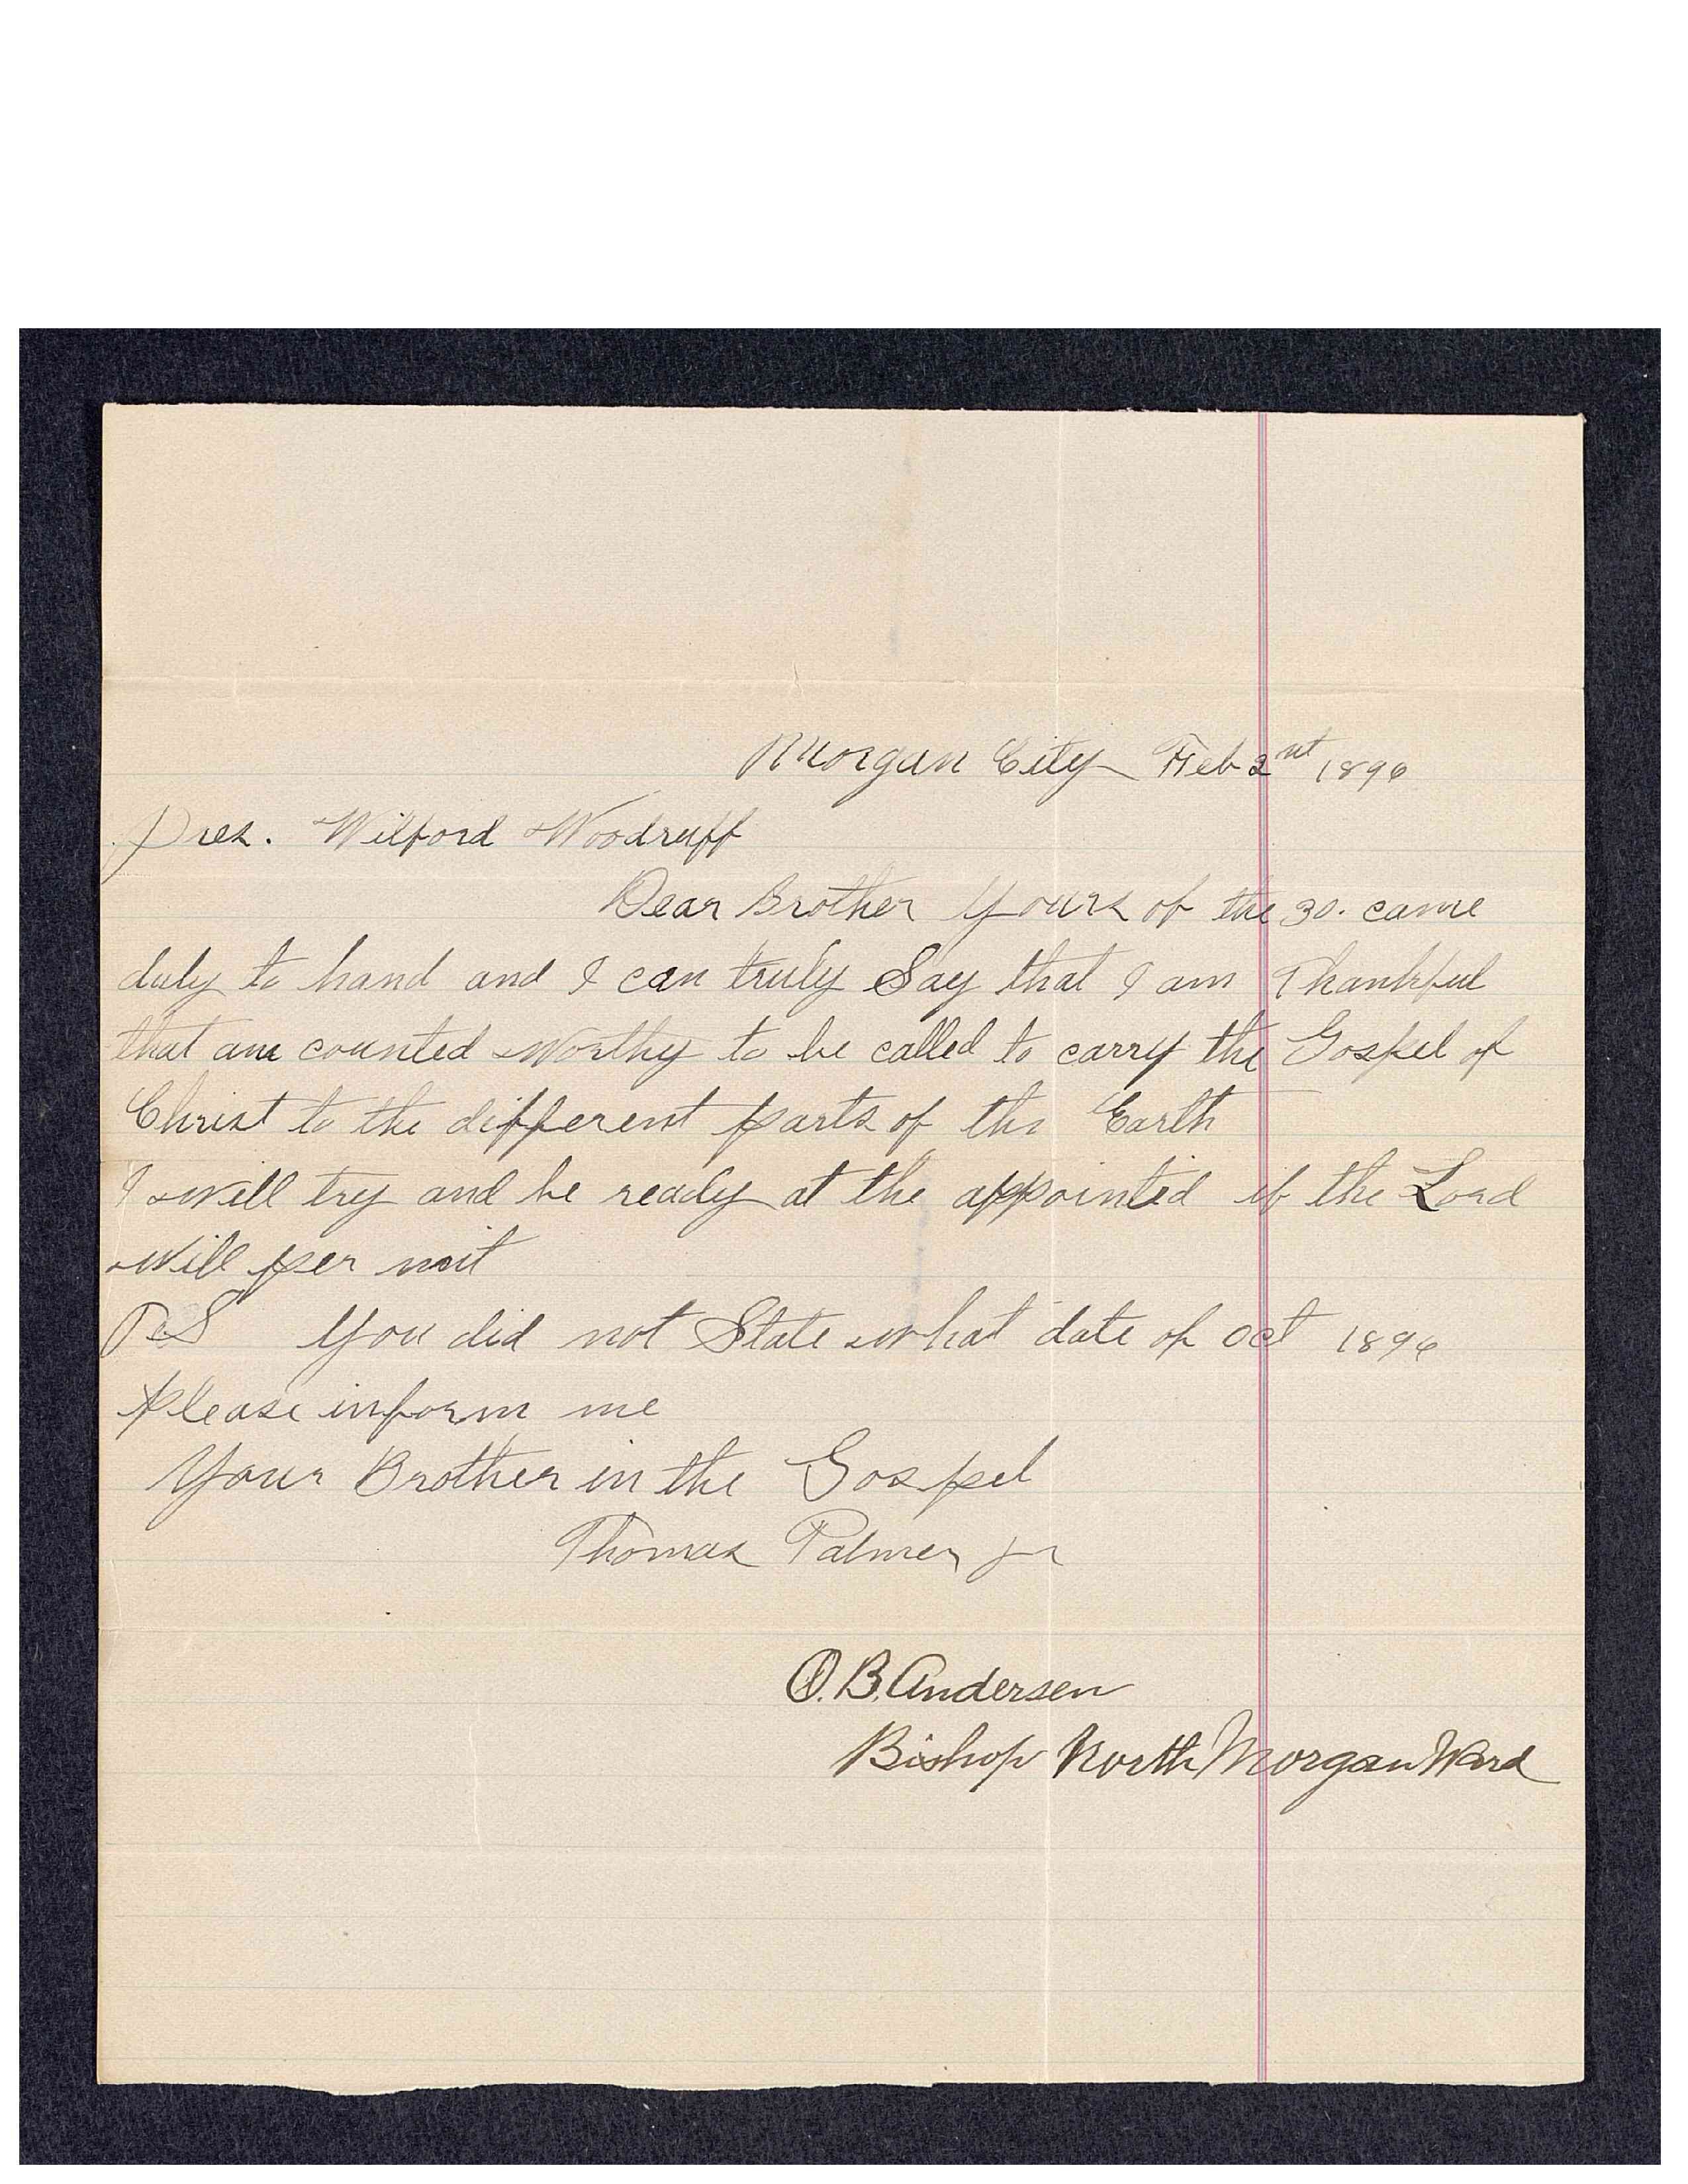 Morgan City Feb 2nt 1896
Pres. Wilford Woodruff
Dear Brother Yours of the 30. came
duly to hand and I can truly Say that I am Thankful
that am counted Worthy to be called to carry the Gospel of
Christ to the different parts of the Earth
I will try and be ready at the appointed if the Lord
Will per mit
PS You did not State what date of Oct 1896
Please inform me
Your Brother in the Gospel
Thomas Palmer Jr
O. B. Andersen
Bishop North Morgan Ward